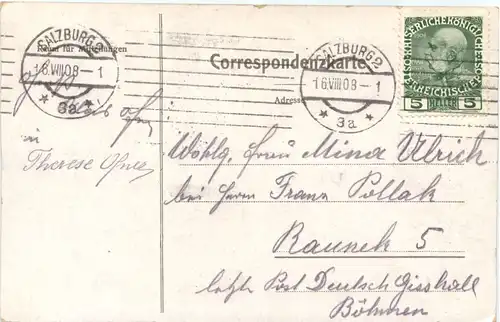 SALZBURG 2
16.VIII.08-1
* 3a *
Raum für Mitteilungen
Therese
Correspondenzkarte
Adresse
SALZBURG 2
16.VIII.08-1
* 3a *
KAISERLICHE KÖNIGLICHE
ÖSTERREICHISCHE
5 HELLER 5
Wohlg. Frau Mina Ulrich
bei Herrn Franz Pollak
Raunek 5
letzte Post Deutsch Gisshall
Böhmen